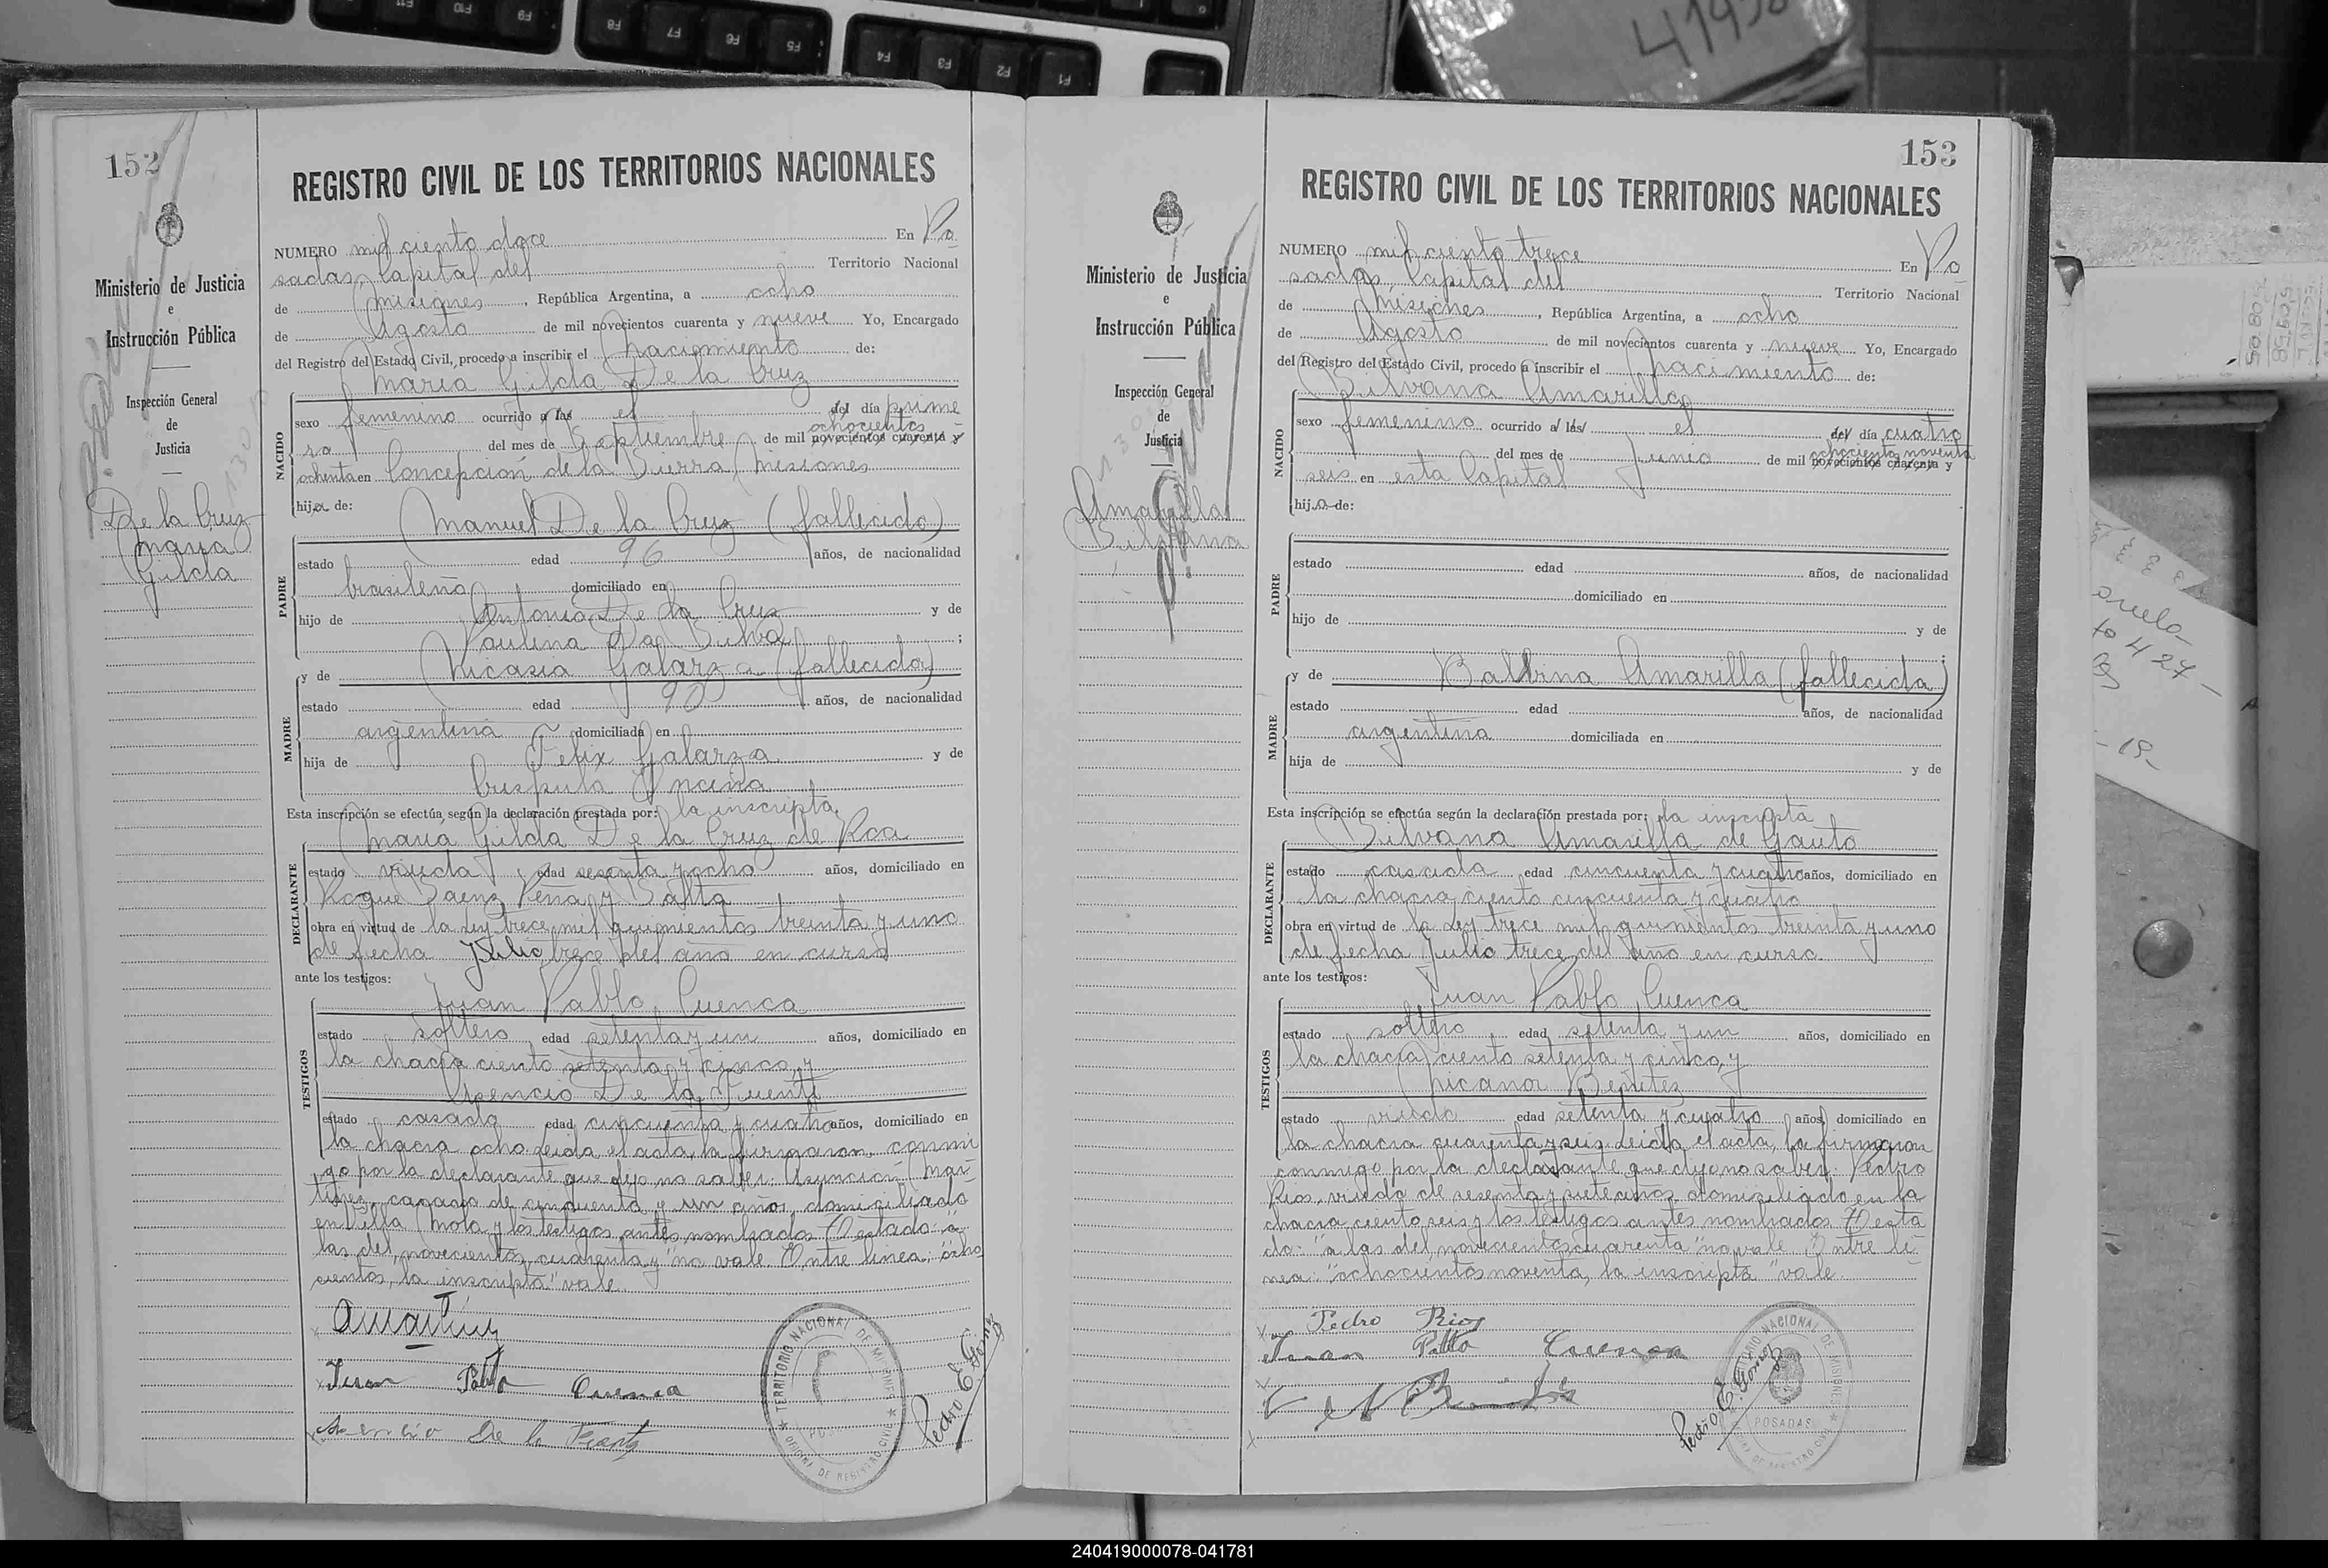 152
REGISTRO CIVIL DE LOS TERRITORIOS NACIONALES
Ministerio de Justicia
e
Instrucción Pública
Inspección General
de
Justicia
De la Cruz
Maria
Gilda
NUMERO mil ciento doce En Po
sadas, Capital del Territorio Nacional
de Misiones, República Argentina, a ocho
de Agosto de mil novecientos cuarenta y nueve Yo, Encargado
del Registro del Estado Civil, procedo a inscribir el nacimiento de:
Maria Gilda De la Cruz
NACIDO
sexo femenino ocurrido a las el del día prime
ochocientos
ro del mes de Septiembre de mil novecientos cuarenta y
ochenta en Concepción de la Sierra, Misiones
hija de:
PADRE
Manuel De la Cruz (fallecido)
estado edad 96 años, de nacionalidad
brasileña domiciliado en
hijo de Antonio De la Cruz y de
Paulina Da Silva;
MADRE
y de Nicasia Galarza (fallecida)
estado edad 90 años, de nacionalidad
argentina domiciliada en
hija de Felix Galarza y de
Crispula Encina
Esta inscripción se efectúa según la declaración prestada por: la inscripta.
DECLARANTE
Maria Gilda De la Cruz de Roa
estado viuda edad sesenta y ocho años, domiciliado en
Roque Saenz Peña y Salta
obra en virtud de la ley trece mil quinientos treinta y uno
de fecha Julio trece del año en curso
ante los testigos:
TESTIGOS
Juan Pablo Cuenca
estado soltero edad setenta y un años, domiciliado en
la chacra ciento setenta y cinco, y
Asencio De la Fuente
estado casado edad cincuenta y cuatro años, domiciliado en
la chacra ocho. Leida el acta, la firmaron conmi
go por la declarante que dijo no saber: Asunción Mar
tinez, casado de cincuenta y un años, domiciliado
en Villa Mota y los testigos antes nombrados. Testado: "a
las del, novecientos cuarenta y" no vale. Entre linea: "ocho
cientos, la inscripta" vale.
Juan Pablo Cuenca
Asencio De la Fuente
TERRITORIO NACIONAL DE MISIONES
OFICINA DE REGISTRO CIVIL
Pedro E. Gomez
153
REGISTRO CIVIL DE LOS TERRITORIOS NACIONALES
Ministerio de Justicia
e
Instrucción Pública
Inspección General
de
Justicia
Amarilla
Silvana
NUMERO mil ciento trece En Po
sadas, Capital del Territorio Nacional
de Misiones, República Argentina, a ocho
de Agosto de mil novecientos cuarenta y nueve Yo, Encargado
del Registro del Estado Civil, procedo a inscribir el nacimiento de:
Silvana Amarilla
NACIDO
sexo femenino ocurrido a las el del día cuatro
ochocientos noventa
del mes de Junio de mil novecientos cuarenta y
seis en esta Capital
hija de:
PADRE
estado edad años, de nacionalidad
domiciliado en
hijo de y de
;
MADRE
y de Balbina Amarilla (fallecida)
estado edad años, de nacionalidad
argentina domiciliada en
hija de y de
Esta inscripción se efectúa según la declaración prestada por: la inscripta
DECLARANTE
Silvana Amarilla de Gauto
estado casada edad cincuenta y cuatro años, domiciliado en
la chacra ciento cincuenta y cuatro
obra en virtud de la Ley trece mil quinientos treinta y uno
de fecha Julio trece del año en curso.
ante los testigos:
TESTIGOS
Juan Pablo Cuenca
estado soltero edad setenta y un años, domiciliado en
la chacra ciento setenta y cinco, y
Nicanor Benitez
estado viudo edad setenta y cuatro años, domiciliado en
la chacra cuarenta y seis. Leida el acta, la firmaron
conmigo por la declarante que dijo no saber: Pedro
Rios, viudo de sesenta y siete años, domiciliado en la
chacra ciento seis y los testigos antes nombrados. Testa
do: "a las del novecientos cuarenta" no vale. Entre li
nea: "ochocientos noventa, la inscripta" vale.
Pedro Rios
Juan Pablo Cuenca
Pedro E. Gomez
TERRITORIO NACIONAL DE MISIONES
POSADAS
240419000078-041781